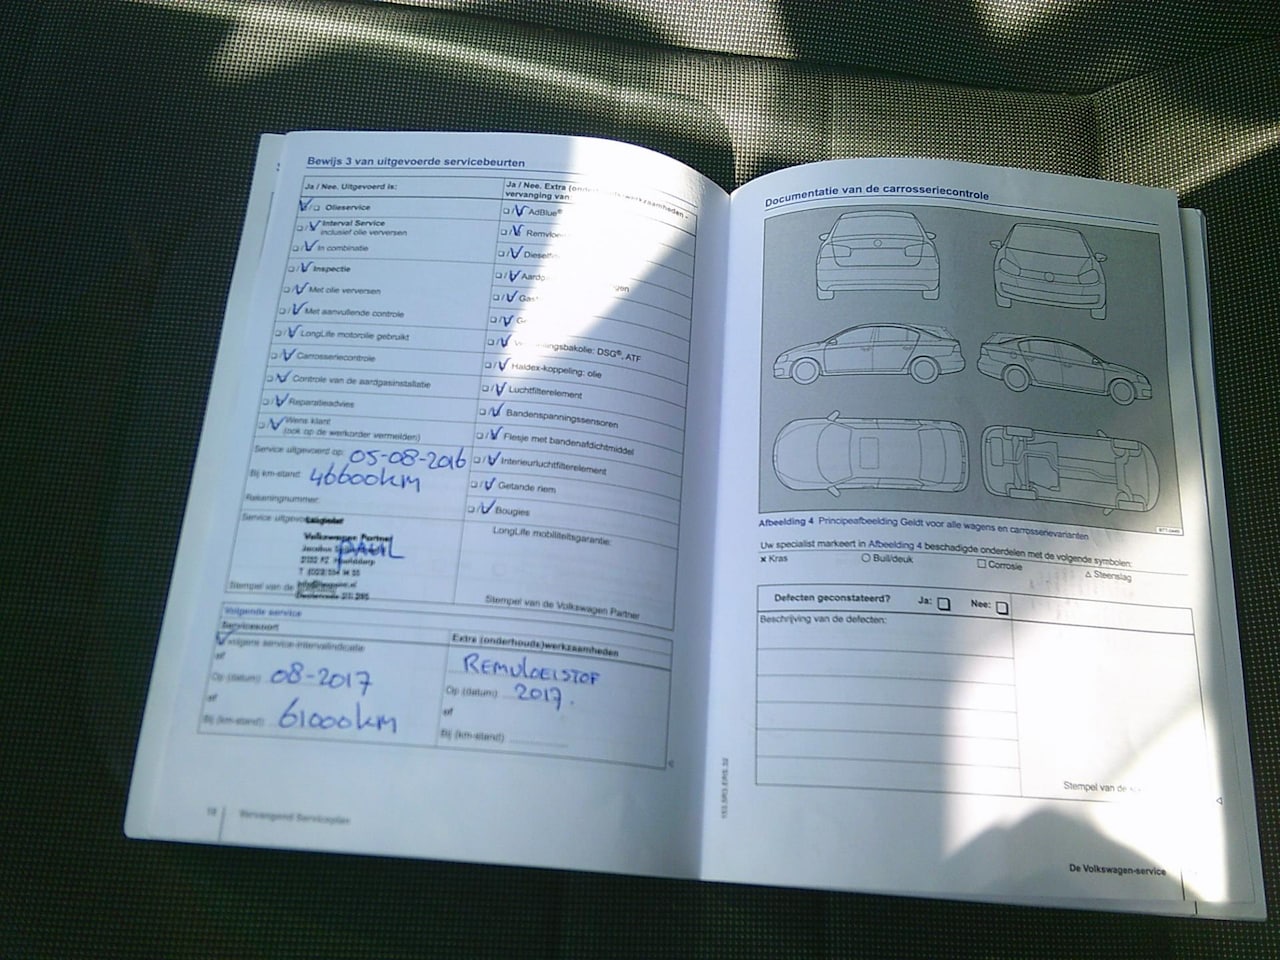 Bewijs 3 van uitgevoerde servicebeurten
Ja / Nee. Uitgevoerd is:
Olieservice
Interval Service
inclusief olie verversen
In combinatie
Inspectie
Met olie verversen
Met aanvullende controle
LongLife motorolie gebruikt
Carrosseriecontrole
Controle van de aardgasinstallatie
Reparatieadvies
Wens klant
(ook op de werkorder vermelden)
Service uitgevoerd op: 05-08-2016
Bij km-stand: 46600km
Rekeningnummer:
Service uitgevoerd
Volkswagen Partner
PAUL
Stempel van de
Ja / Nee. Extra
vervanging van
AdBlue®
DSG®, ATF
Haldex-koppeling: olie
Luchtfilterelement
Bandenspanningssensoren
Flesje met bandenafdichtmiddel
Interieurluchtfilterelement
Getande riem
Bougies
LongLife mobiliteitsgarantie:
Stempel van de Volkswagen Partner
Volgende service
Servicesoort
Volgens service-intervalindicatie
of
Op (datum) 08-2017
of
Bij (km-stand) 61000km
Extra (onderhouds)werkzaamheden
REMVLOEISTOF
Op (datum) 2017.
of
Bij (km-stand)
18 Vervangend Serviceplan
Documentatie van de carrosseriecontrole
Afbeelding 4 Principeafbeelding Geldt voor alle wagens en carrosserievarianten
Uw specialist markeert in Afbeelding 4 beschadigde onderdelen met de volgende symbolen:
x Kras
Buil/deuk
Corrosie
Steenslag
Defecten geconstateerd? Ja: Nee:
Beschrijving van de defecten:
Stempel van de
De Volkswagen-service